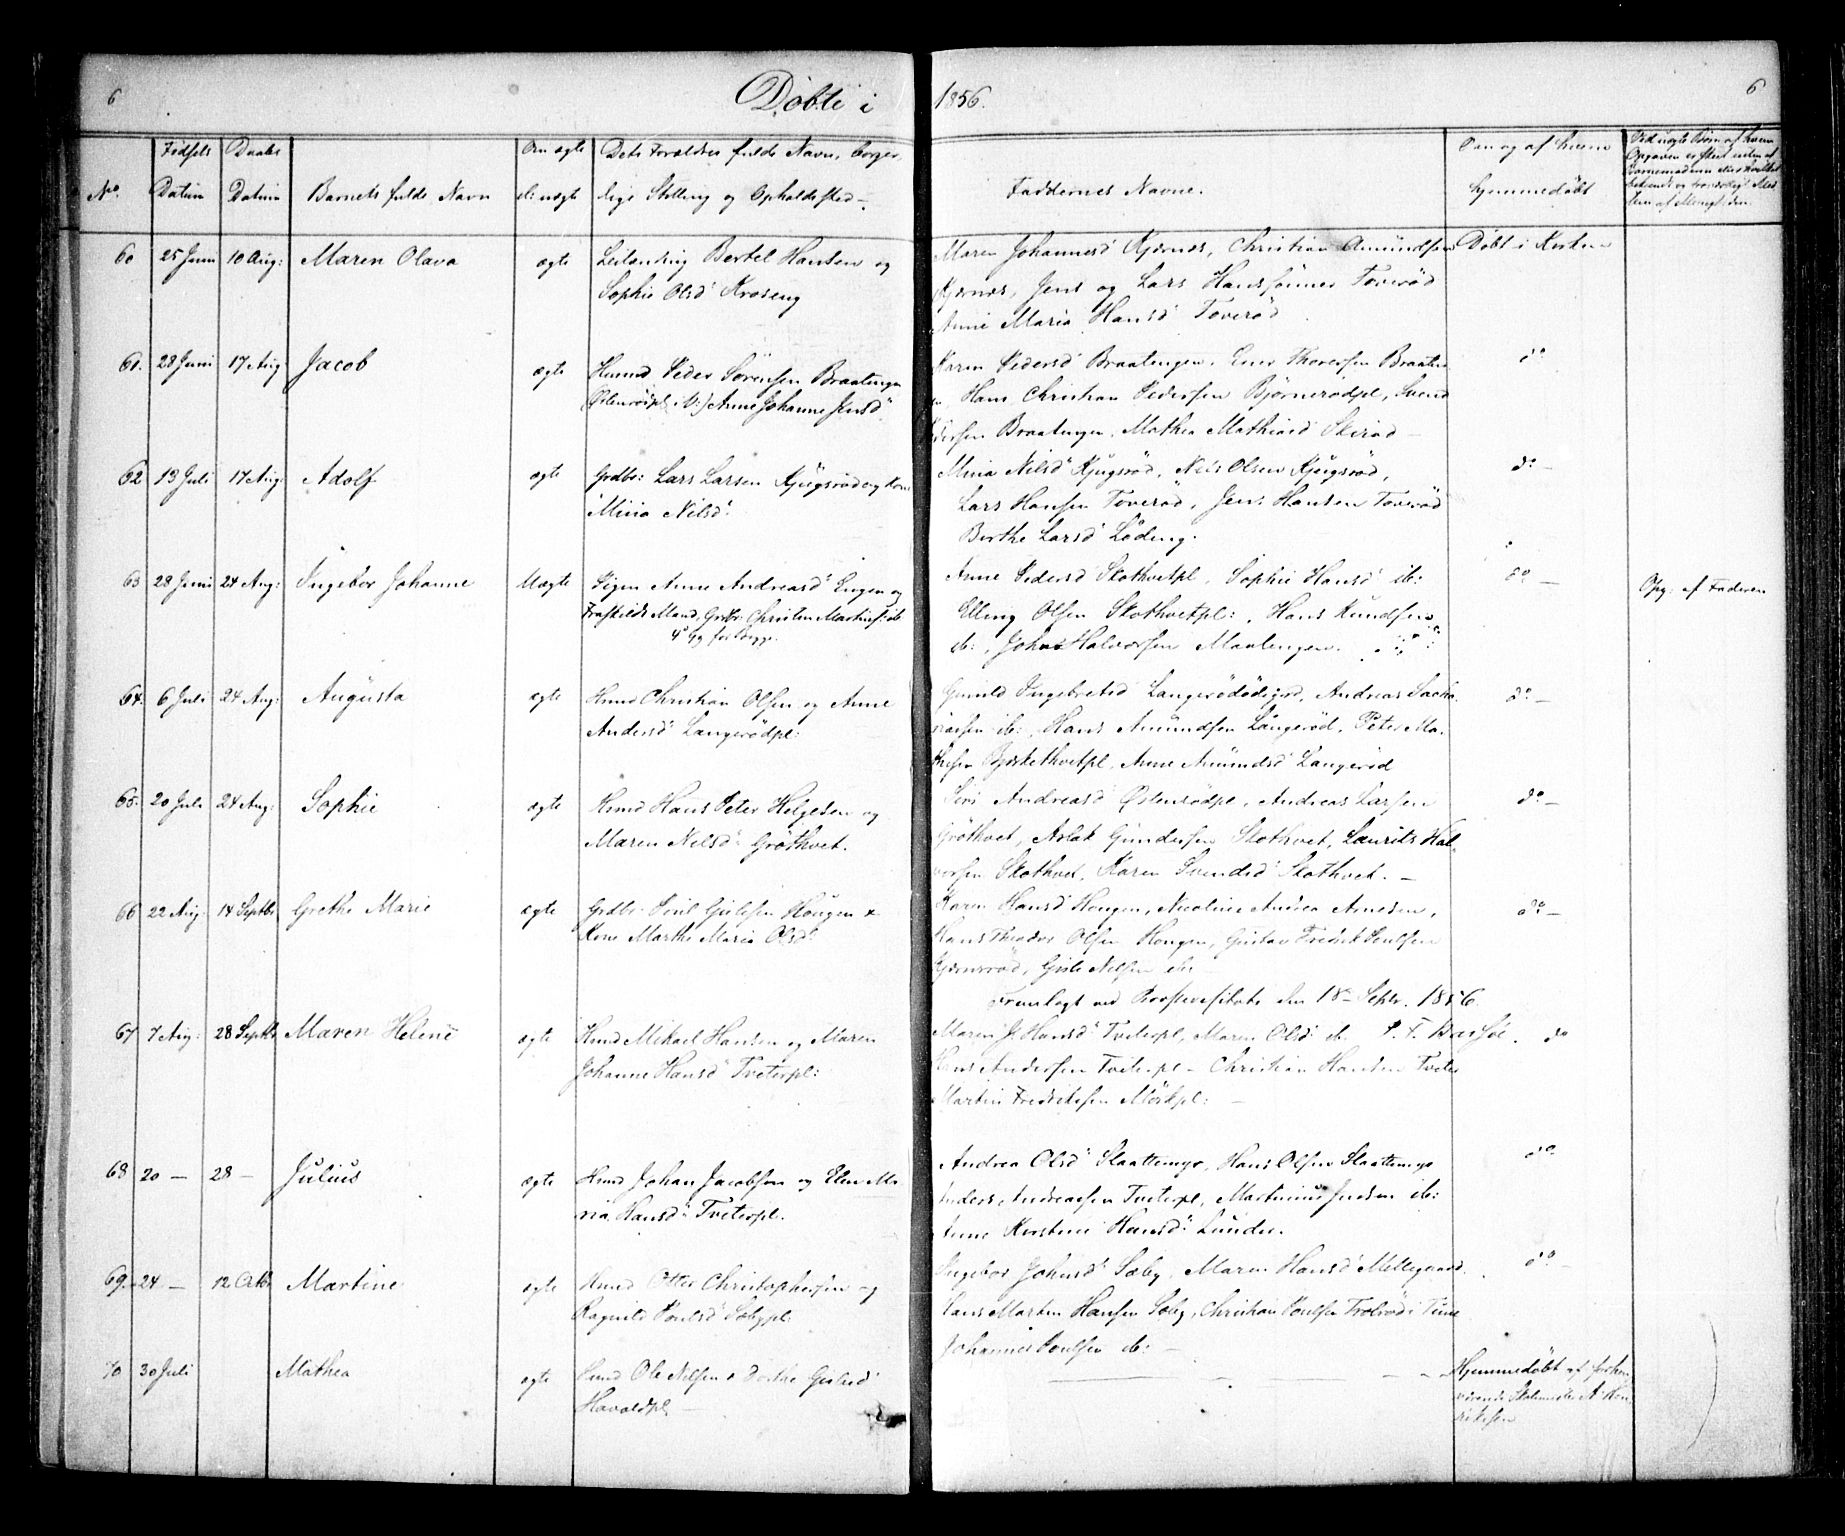 6
Døbte i 1856.
6
No.
Fødsels Datum
Daabs Datum
Barnets fulde Navn
Om ægte eller uægte
Dets Forældres fulde Navn, borgerlige Stilling og Opholdssted.
Faddernes Navne.
Om og af hvem hjemmedøbt
60 25 Juni 10 Aug: Maren Olava ægte Leilænding Bertel Hansen og
Sophie Olsd Kroseng
Maren Johannesd Kjærnes, Christian Amundsen
Kjærnes, Jens og Lars Hanssønner Toverød
Anne Maria Hansd Toverød
Døbt i Kirken
61. 28 Juni 17 Aug Jacob ægte Huusmd Peder Sørensen Braatengen
(Østenrødpl. N:) Anne Johanne Jensd
Karen Pedersd Braatengen, Ener Thoresen Braaten
Hans Christian Pedersen Bjørnerødpl, Svend
Pedersen Braatengen, Mathea Mathiasd Skirød
do
62 13 Juli 17 Aug: Adolf ægte Grdbr: Lars Larsen Kjugsrød og Kone
Mina Nilsd
Mina Nilsd Kjugsrød, Nils Olsen Kjugsrød,
Lars Hansen Toverød, Jens Hansen Toverød
Berthe Larsd Løding.
do
63 28 Juni 24 Aug: Ingebor Johanne Uægte Pigen Anne Andreasd Engen og
Fraskildt Mand, Grbr: Christen Martins: ib
4de Gg for begge.
Anne Pedersd Skothvetpl, Sophie Hansd ib:
Elling Olsen Skothvetpl:, Hans Knudsen
ib:, Johan Halvorsen Maalengen.
do
Opg: af Faderen
64. 6 Juli 24 Aug: Augusta ægte Hmd Christian Olsen og Anne
Andersd Langerødpl:
Gunild Ingebretsd Langerødødegrd, Andreas Sacha
riassen ib:, Hans Amundsen Langerød, Peter Ma
thisen Bjerkethvetpl, Anne Amundsd Langerød
do
65. 20 Juli 24 Aug: Sophie ægte Hmd Hans Peter Helgesen og
Maren Nilsd Grøthvet.
Siri Andreasd Østenrødpl, Andreas Larsen
Grøthvet, Aslak Gundersen Skothvet, Laurits Hal
vorsen Skothvet, Karen Svendsd Skothvet.
do
66 22 Aug: 14 Septbr Grethe Marie ægte Grdbr: Poul Gulesen Hougen &
Kone Marthe Maria Olsd
Karen Hansd Hougen, Nicoline Andrea Arnesen,
Hans Theodor Olsen Hougen, Gustav Fredrik Poulsen
Kjærnsrød, Gule Nilsen ib:
do
Fremlagt ved Provstevisitats den 18de Septbr. 1856.
67 7 Aug: 28 Septbr Maren Helene ægte Hmd Mikael Hansen og Maren
Johanne Hansd Tveterpl:
Maren J. Hansd Tveterpl, Maren Olsd ib.
Hans Andersen Tveterpl – Christian Hansen Tveter
Martin Fredriksen Mörkpl:
do
68 20 — 28 — Julius ægte Hmd Johan Jacobsen og Elen Ma
ria Hansd Tveterpl.
Andrea Olsd Slaattemyr, Hans Olsen Slaattemyr
Anders Andreassen Tveterpl, Martinius Jensen ib:
Anne Kirstine Hansd Lunder.
do
69. 24 — 12 Octbr Martine ægte Hmd Otter Christophersen og
Ragnild Poulsd Sæbypl:
Ingebor Johnsd Sæby, Maren Hansd Mellegaard
Hans Martin Hansen Sæby, Christian Poulsen Trolrød i Tune
Johannes Poulsen ib:
do
70 30 Juli Mathea ægte Hmd Ole Nilsen & Dorthe Gulesd
Havaldpl.
Hjemmedøbt af forhen
værende Skolemester A. Hen
riksen